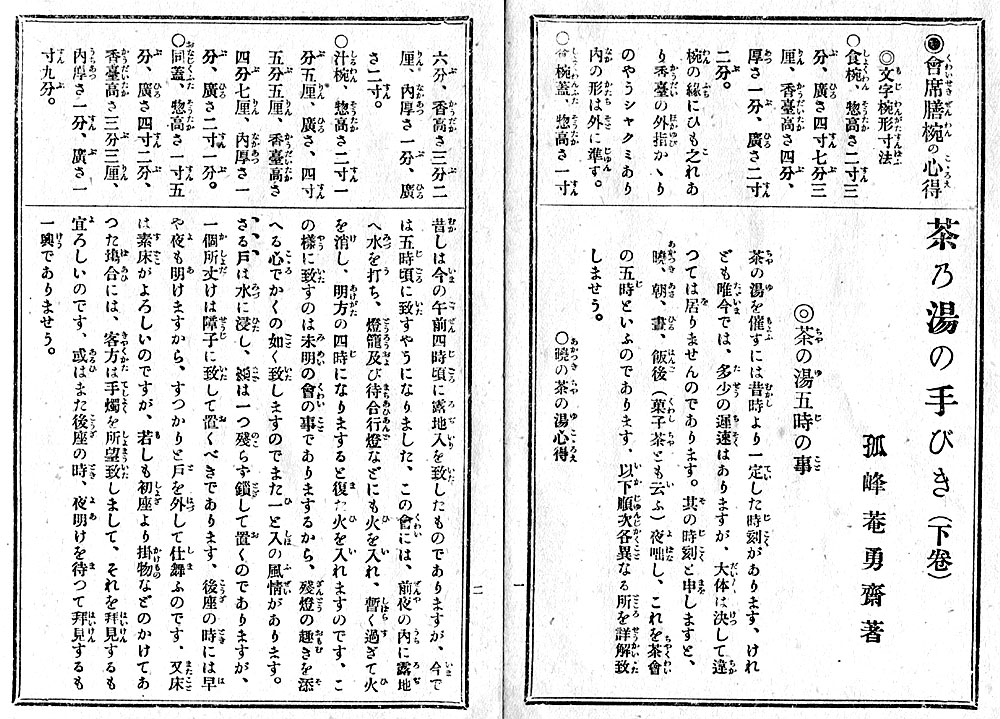 茶乃湯の手びき(下卷)
孤峰菴勇齋著
◎茶の湯五時の事
茶の湯を催すには昔時より一定した時刻があります、けれ
ども唯今では、多少の遲速はありますが、大体は決して違
つては居りませんのであります。其の時刻と申しますと、
曉、朝、晝、飯後(菓子茶とも云ふ)夜咄し、これを茶會
の五時といふのであります、以下順次各異なる所を詳解致
しませう。
○曉の茶の湯心得
◉會席膳椀の心得
◎文字椀形寸法
○食椀、惣高さ二寸三
分、廣さ四寸七分三
厘、香臺高さ四分、
厚さ一分、廣さ二寸
二分。
椀の緣にひも之れあ
り香臺の外指かゝり
のやうシヤクミあり
內の形は外に準す。
○仝椀蓋、惣高さ一寸
一
昔しは今の午前四時頃に露地入を致したものでありますが、今で
は五時頃に致すやうになりました、この會には、前夜の內に露地
へ水を打ち、燈籠及び待合行燈などにも火を入れ、暫く過ぎて火
を消し、明方の四時になりますると復た火を入れますのです、こ
の樣に致すのは未明の會の事でありまするから、殘燈の趣きを添
へる心でかくの如く致しますのでまた一と入の風情があります。
さる戶は水に浸し、額は一つ殘らず鎖して置くのでありますが、
一個所丈けは障子に致して置くべきであります、後座の時には早
や夜も明けますから、すつかりと戶を外して仕舞ふのです、又床
は素床がよろしいのですが、若しも初座より掛物などのかけてあ
つた塲合には、客方は手燭を所望致しまして、それを拜見するも
宜ろしいのです、或はまた後座の時、夜明けを待つて拜見するも
一興でありませう。
六分、香高さ三分二
厘、內厚さ一分、廣
さ二寸。
○汁椀、惣高さ二寸一
分五厘、廣さ、四寸
五分五厘、香臺高さ
四分七厘、內厚さ一
分、廣さ二寸一分。
○同蓋、惣高さ一寸五
分、廣さ四寸二分、
香臺高さ三分三厘、
內厚さ一分、廣さ一
寸九分。
二